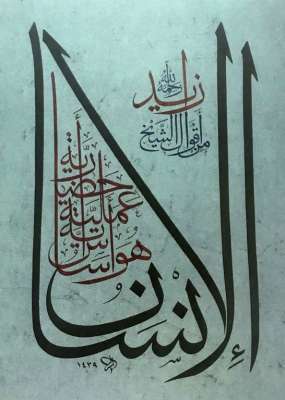 من أقوال الشيخ
زايد
رحمه الله
الإنسان
هو أساس
أية
عملية
حضارية
١٤٣٩